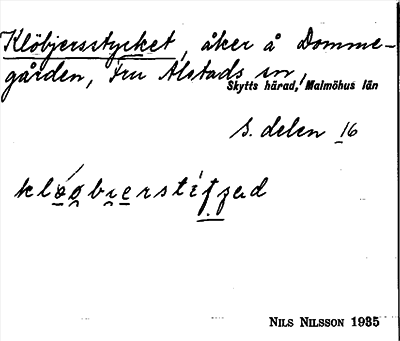 Klöbjersstycket, åker å Domme-
gården, Fru Alstads sn,
Skytts härad, Malmöhus län
S. delen 16
NILS NILSSON 1935